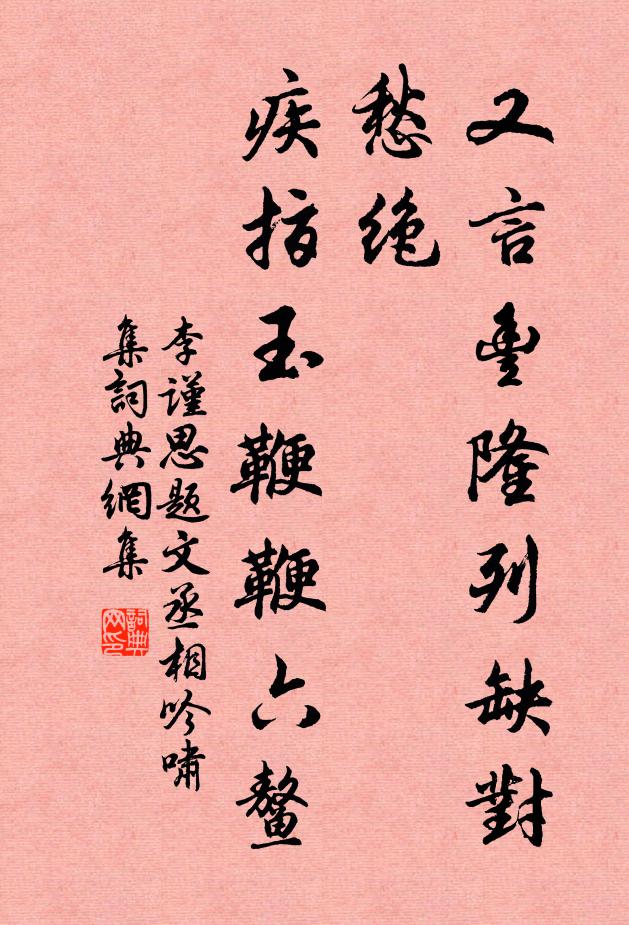 又言豐隆列缺對
愁絶
疾指玉鞭鞭六鰲
李謹思題文丞相吟嘯
集詞典網集
詞典网印